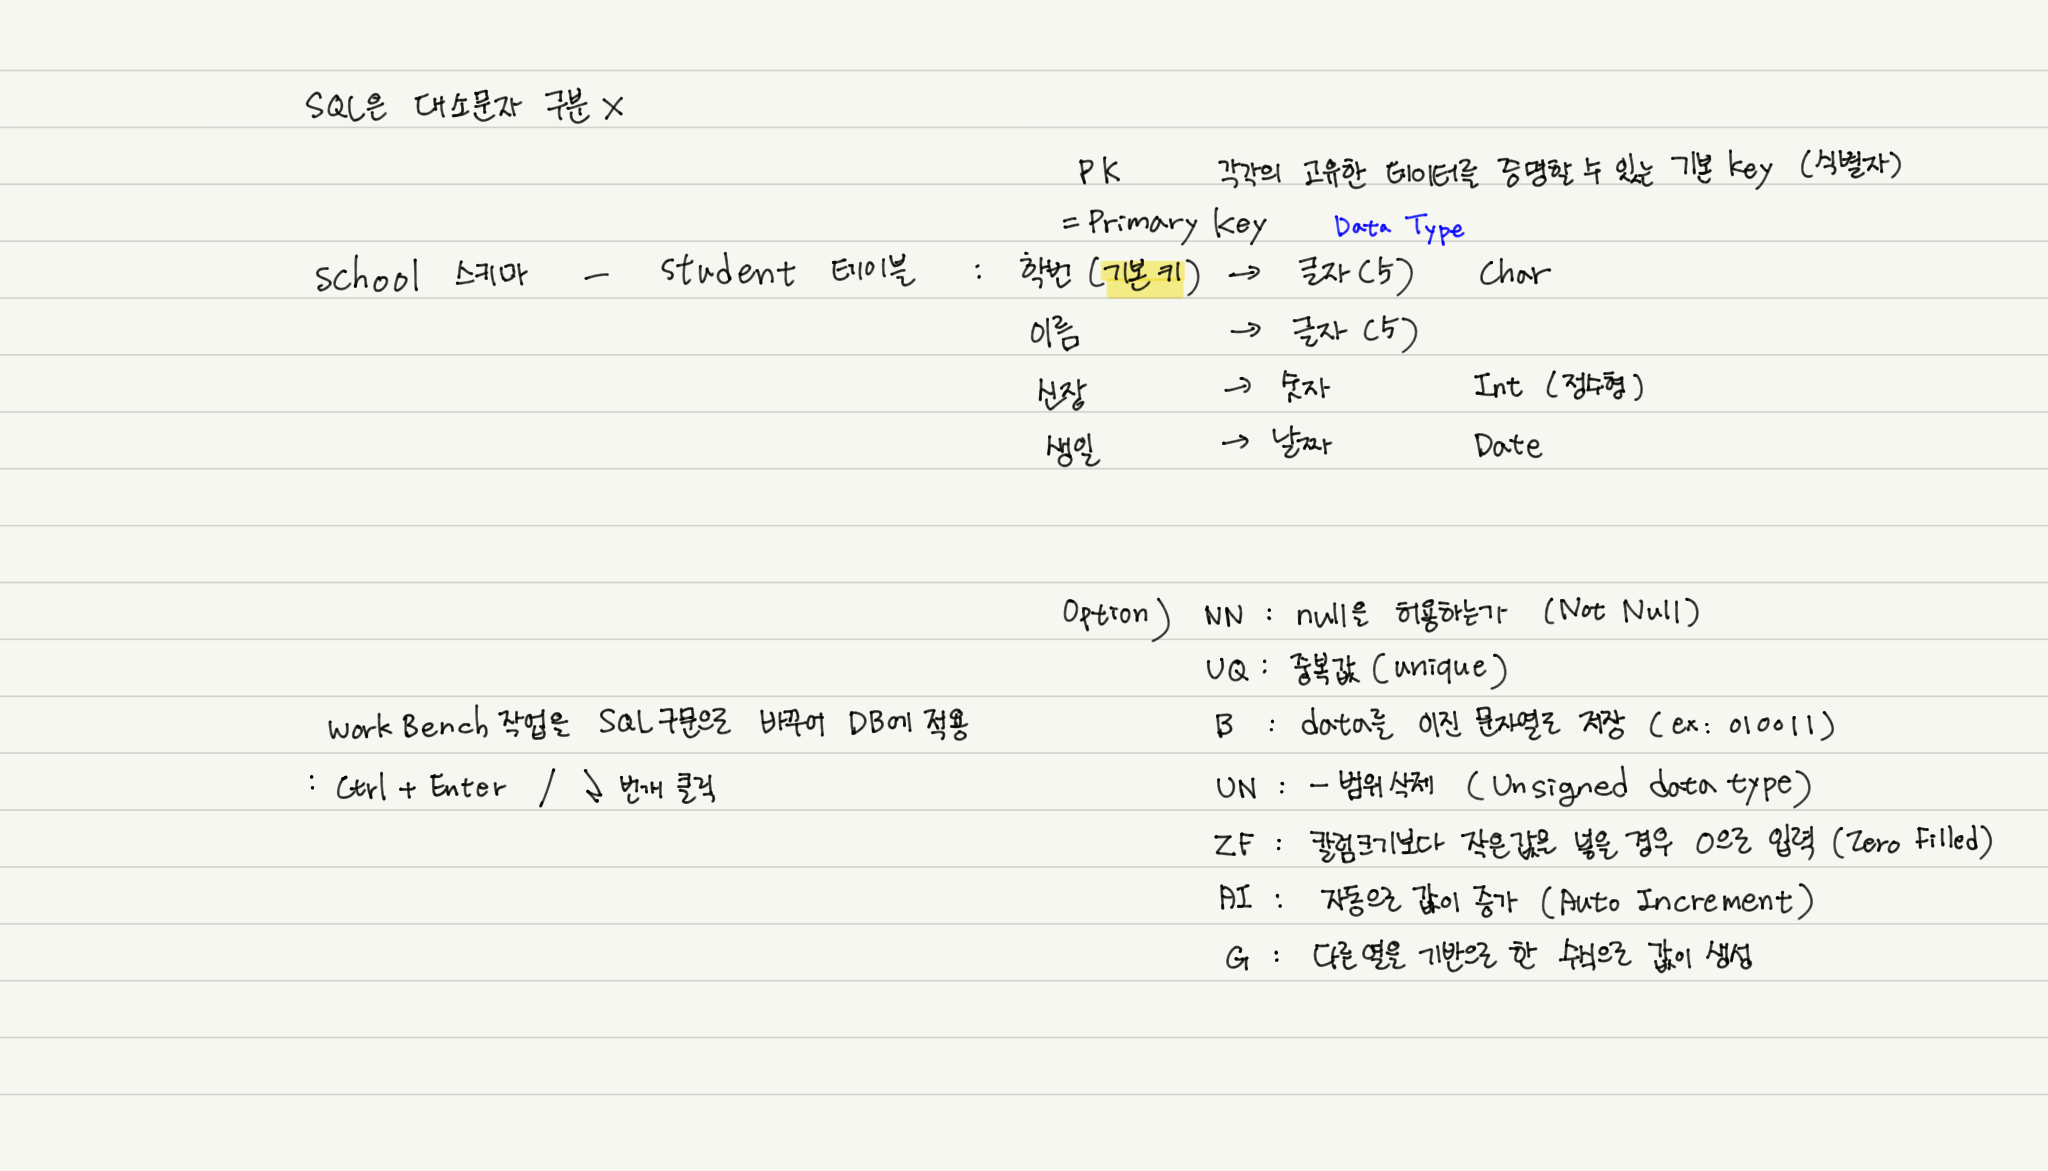 SQL은 대소문자 구분 X
PK 각각의 고유한 데이터를 증명할 수 있는 기본 key (식별자)
= Primary key Data Type
school 스키마 - student 테이블 : 학번 (기본 키) → 글자 (5) Char
이름 → 글자 (5)
신장 → 숫자 Int (정수형)
생일 → 날짜 Date
Option) NN : null을 허용하는가 (Not Null)
UQ : 중복값 (unique)
work Bench 작업을 SQL 구문으로 바꾸어 DB에 적용
: Ctrl + Enter / 번개 클릭
B : data를 이진 문자열로 저장 (ex: 010011)
UN : - 범위 삭제 (Unsigned data type)
ZF : 칼럼크기보다 작은값을 넣을 경우 0으로 입력 (Zero Filled)
AI : 자동으로 값이 증가 (Auto Increment)
G : 다른 열을 기반으로 한 수식으로 값이 생성